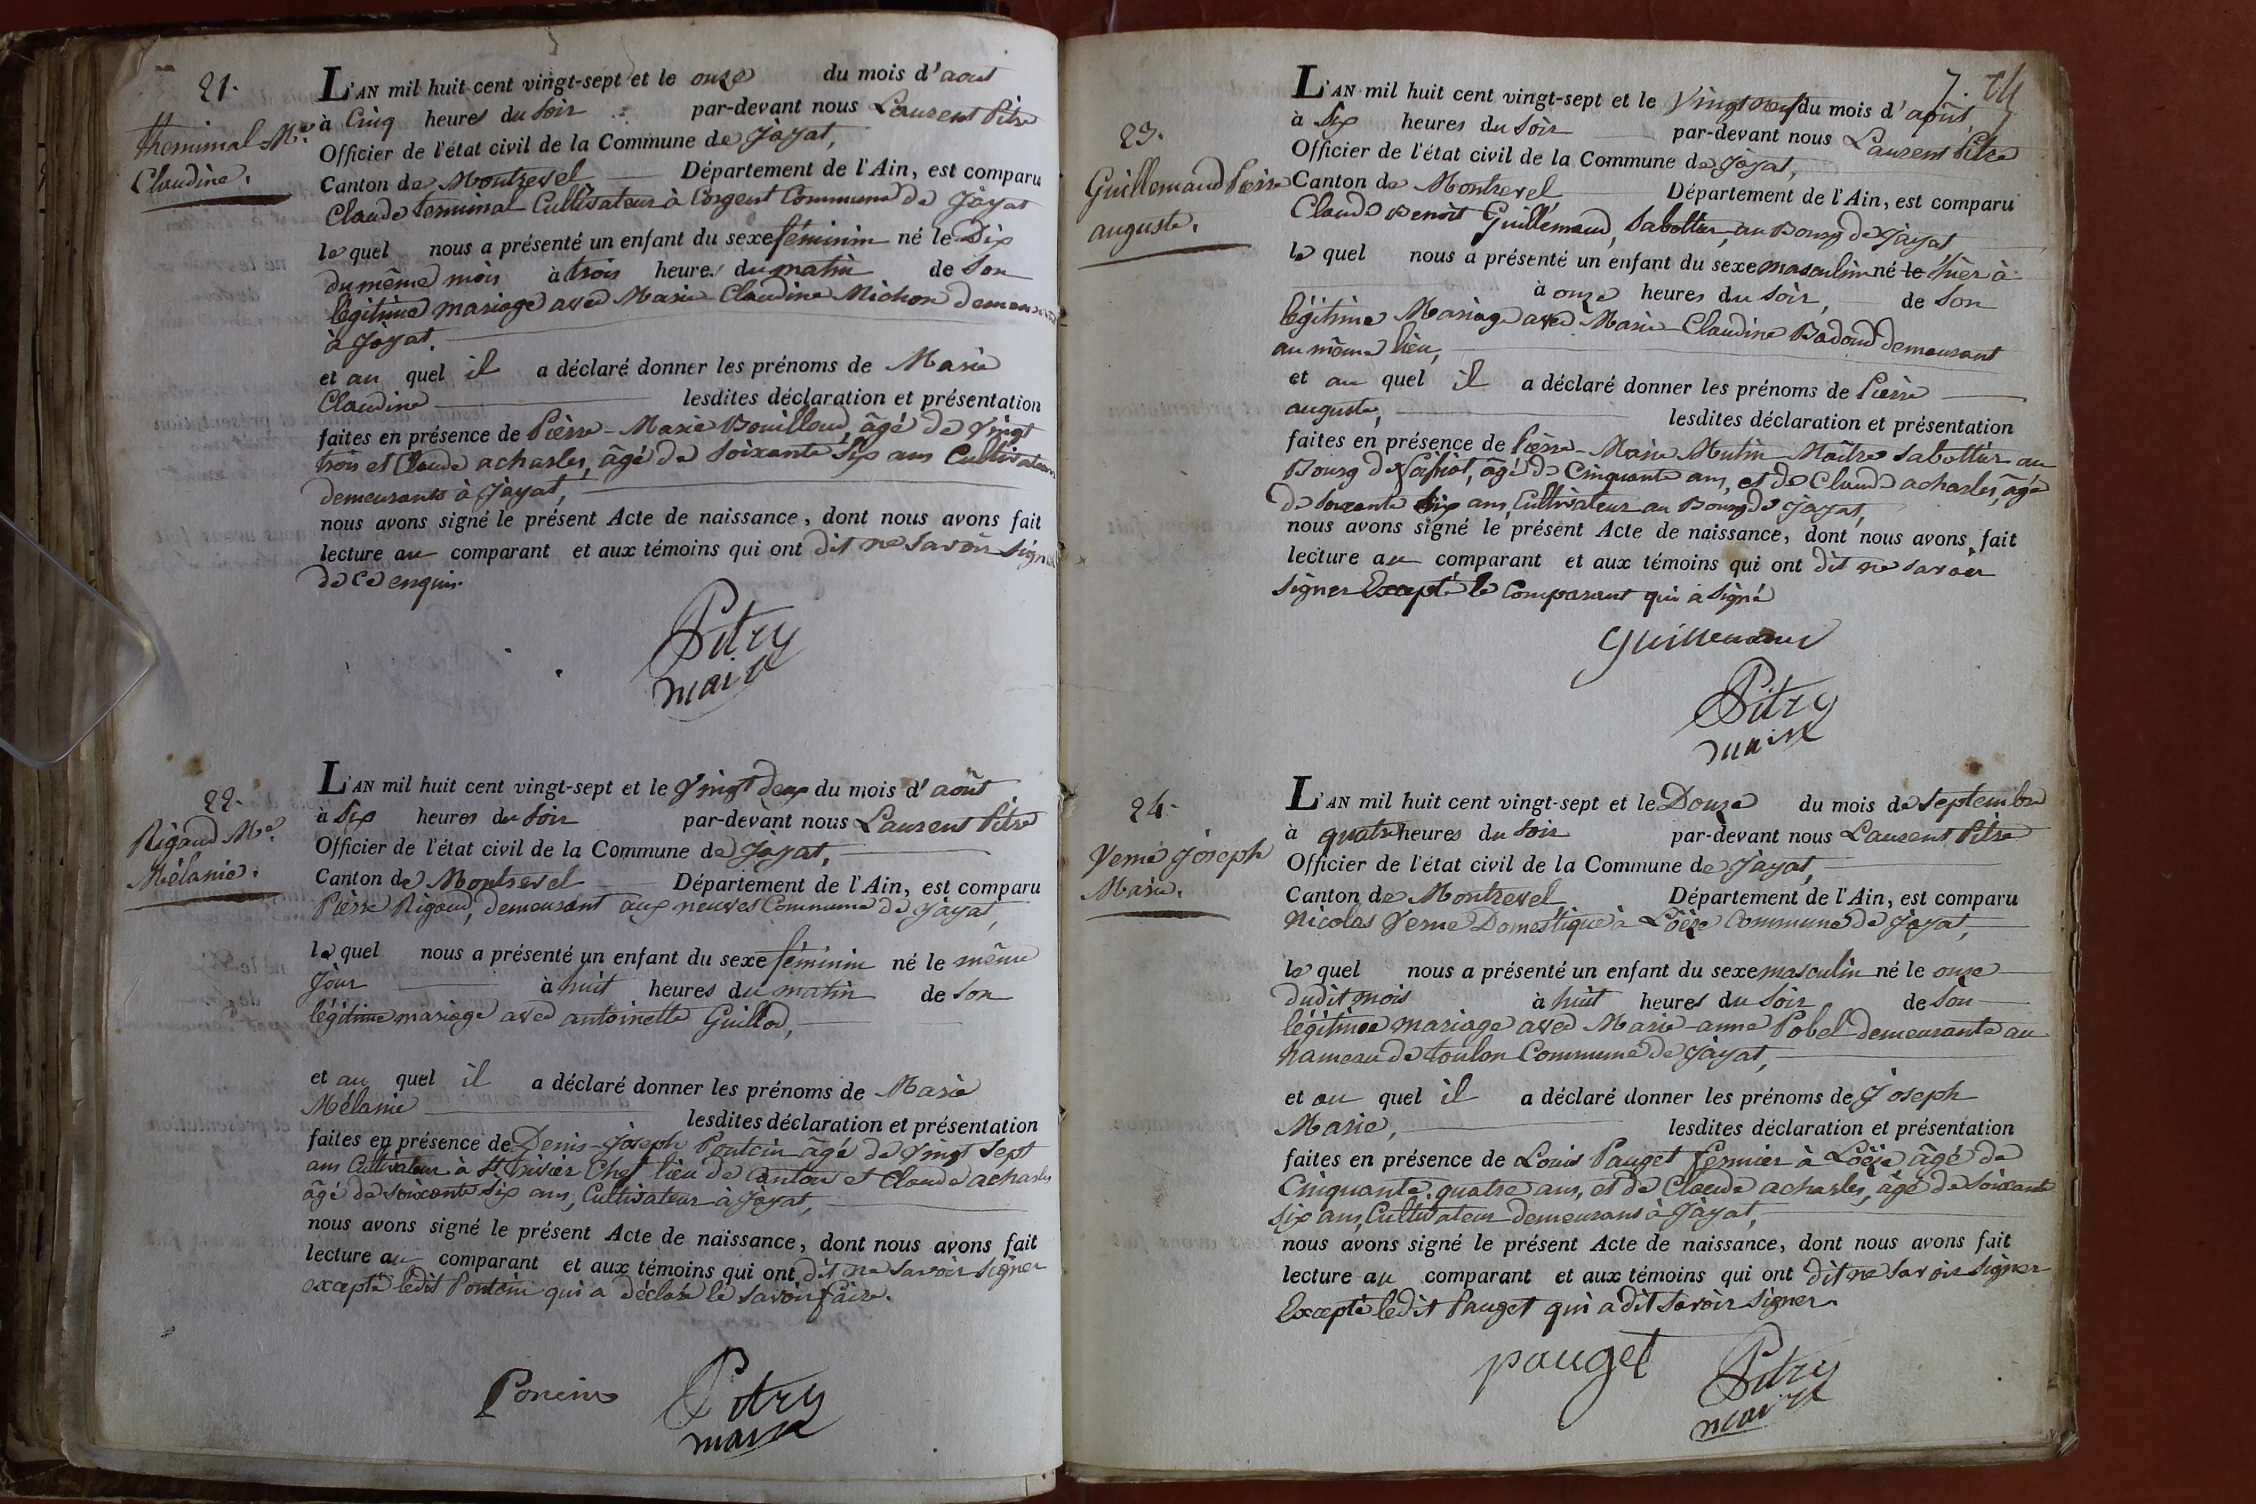 21.
themimal M.e
Claudine.
L'AN mil huit cent vingt-sept et le onze du mois d'aout
à Cinq heures du soir par-devant nous Laurent Pitre
Officier de l'état civil de la Commune de Jayat,
Canton de Montrevel Département de l'Ain, est comparu
Claude temimal Cultivateur à Corgent Commune de Jayat
le quel nous a présenté un enfant du sexe féminin né le Dix
du même mois à trois heures du matin de Son
légitime mariage avec Marie Claudine Michon demeurant
à Jayat.
et au quel il a déclaré donner les prénoms de Marie
Claudine lesdites déclaration et présentation
faites en présence de Pierre-Marie Bouilloud, âgé de vingt
trois et Claude acharles, âgé de soixante Six ans Cultivateurs
demeurants à Jayat,
nous avons signé le présent Acte de naissance, dont nous avons fait
lecture au comparant et aux témoins qui ont dit ne savoir signer
de ce enquis.
Pitry
maire
22.
Rigaud M.e
Mélanie.
L'AN mil huit cent vingt-sept et le Vingt deux du mois d'août
à Six heures du soir par-devant nous Laurent Pitre
Officier de l'état civil de la Commune de Jayat,
Canton de Montrevel Département de l'Ain, est comparu
Pierre Rigaud, demeurant aux neuves Commune de Jayat,
le quel nous a présenté un enfant du sexe féminin né le même
Jour à huit heures du matin de Son
légitime mariage avec antoinette Guillod,
et au quel il a déclaré donner les prénoms de Marie
Mélanie lesdites déclaration et présentation
faites en présence de Denis-Joseph Pontcin âgé de Vingt Sept
ans Cultivateur à St. trivier Chef lieu de Canton et Claude acharles
âgé de soixante six ans, Cultivateur à Jayat,
nous avons signé le présent Acte de naissance, dont nous avons fait
lecture au comparant et aux témoins qui ont dit ne savoir signer
excepté ledit Pontcin qui a déclaré le savoir faire.
Poncin Pitry
maire
7.
23.
Guillemaud Pierre
auguste.
L'AN mil huit cent vingt-sept et le Vingt neuf du mois d'août,
à Six heures du Soir par-devant nous Laurent Pitre
Officier de l'état civil de la Commune de Jayat,
Canton de Montrevel Département de l'Ain, est comparu
Claude Benoit Guillemaud, Sabottier, au Bourg de Jayat
le quel nous a présenté un enfant du sexe masculin né le hier à
à onze heures du Soir, de Son
légitime Mariage avec Marie-Claudine Badoud demeurant
au même lieu,
et au quel il a déclaré donner les prénoms de Pierre
auguste, lesdites déclaration et présentation
faites en présence de Pierre-Marie Mutin Maître Sabottier au
Bourg de Foissiat, âgé de Cinquante ans, et de Claude acharles, âgé
de soixante Six ans, Cultivateur au Bourg de Jayat,
nous avons signé le présent Acte de naissance, dont nous avons fait
lecture au comparant et aux témoins qui ont dit ne savoir
signer Excepté le Comparant qui a signé
Guillemaud
Pitry
maire
24.
Verne Joseph
Marie.
L'AN mil huit cent vingt-sept et le Douze du mois de Septembre
à quatre heures du Soir par-devant nous Laurent Pitre
Officier de l'état civil de la Commune de Jayat,
Canton de Montrevel Département de l'Ain, est comparu
Nicolas Verne Domestique à Loëze Commune de Jayat,
le quel nous a présenté un enfant du sexe masculin né le onze
dudit mois à huit heures du Soir de Son
légitime mariage avec Marie-anne Pobel demeurante au
hameau de toulon Commune de Jayat,
et au quel il a déclaré donner les prénoms de Joseph
Marie, lesdites déclaration et présentation
faites en présence de Louis Pauget fermier à Loëze âgé de
Cinquante quatre ans, et de Claude acharles, âgé de Soixante
Six ans, Cultivateur demeurans à Jayat,
nous avons signé le présent Acte de naissance, dont nous avons fait
lecture au comparant et aux témoins qui ont dit ne savoir signer
Excepté ledit Pauget qui a dit savoir signer.
pauget Pitry
maire